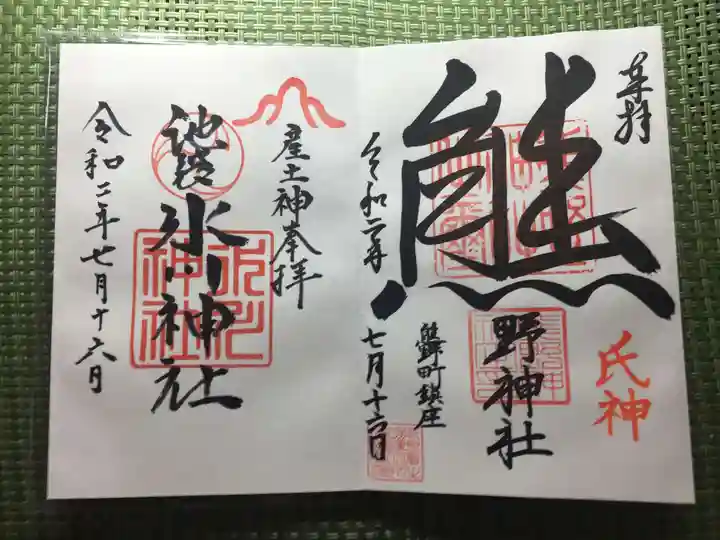 奉拝
氏神
熊
野神社
熊野町鎮座
令和二年
七月十六日
産土神奉拝
池袋
氷川神社
氷川
神社
令和二年七月十六日